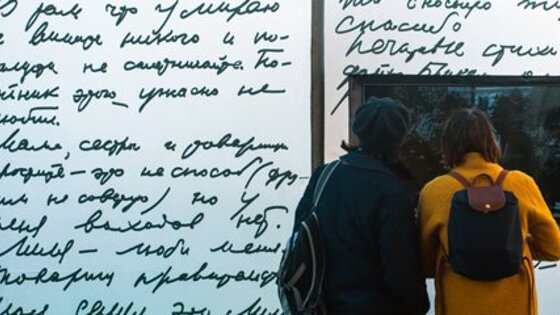 В том что умираю
не вините никого и по-
алуйста не сплетничайте. По-
йник этого ужасно не
юбил.
Мама, сестры и товарищи
ростите — это не способ (дру-
гим не советую) но у
меня выходов нет.
Лиля — люби меня.
Товарищ правительство
моя семья это Лиля
спасибо
стихи